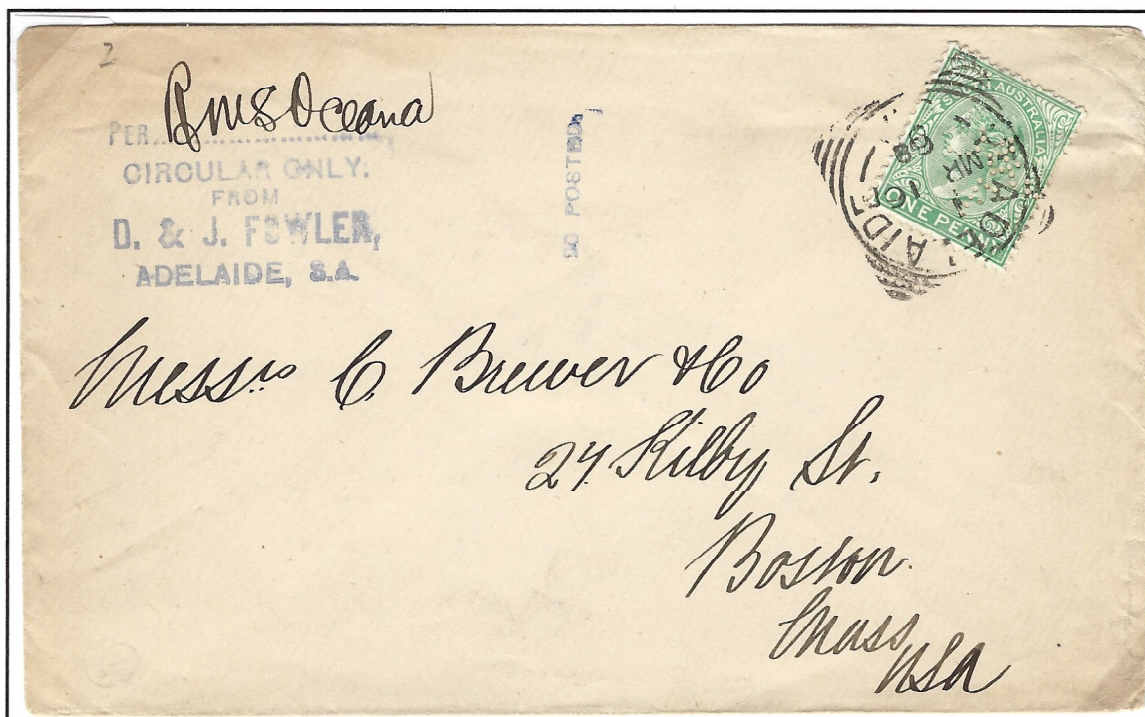 2
RMS Oceana
PER
CIRCULAR ONLY.
FROM
D. & J. FOWLER,
ADELAIDE, S.A.
SO POSTED.
SOUTH AUSTRALIA
ONE PENNY
MR 16
98
Messrs C Brewer & Co
27 Kilby St.
Boston.
Mass
USA